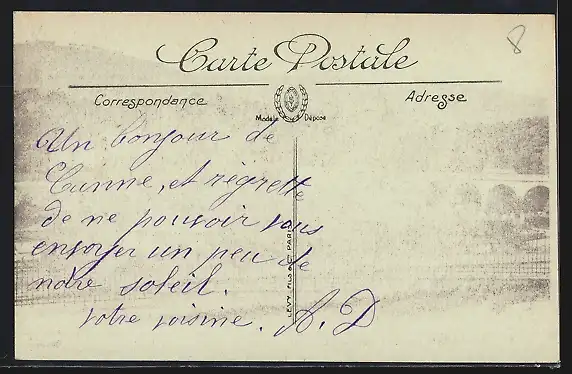 8
Carte Postale
Correspondance
Adresse
Modèle Déposé
Un bonjour de
Cunne, et régrette
de ne pouvoir vous
envoyer un peu de
notre soleil.
votre voisine. A. D
LEVY FILS & Cie PARIS